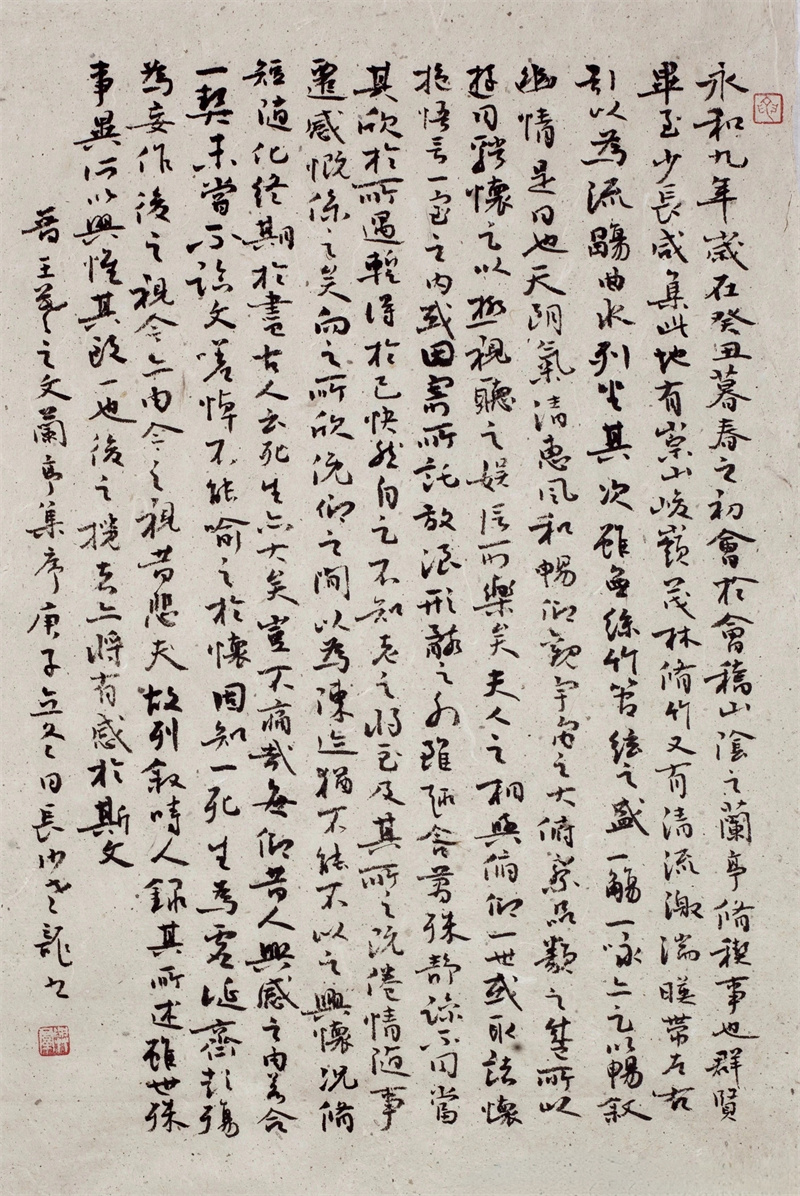 永和九年歲在癸丑暮春之初會於會稽山陰之蘭亭脩稧事也群賢
畢至少長咸集此地有崇山峻嶺茂林脩竹又有清流激湍暎帶左右
引以為流觴曲水列坐其次雖無絲竹管絃之盛一觴一詠亦足以暢叙
幽情是日也天朗氣清惠風和暢仰觀宇宙之大俯察品類之盛所以
遊目騁懷足以極視聽之娛信可樂矣夫人之相與俯仰一世或取諸懷
抱悟言一室之內或因寄所託放浪形骸之外雖趣舍萬殊靜躁不同當
其欣於所遇暫得於己快然自足不知老之將至及其所之既倦情隨事
遷感慨係之矣向之所欣俛仰之間以為陳迹猶不能不以之興懷況脩
短隨化終期於盡古人云死生亦大矣豈不痛哉每攬昔人興感之由若合
一契未嘗不臨文嗟悼不能喻之於懷固知一死生為虛誕齊彭殤
為妄作後之視今亦由今之視昔悲夫故列叙時人錄其所述雖世殊
事異所以興懷其致一也後之攬者亦將有感於斯文
晉王羲之文蘭亭集序庚子立冬日長沙老龍書